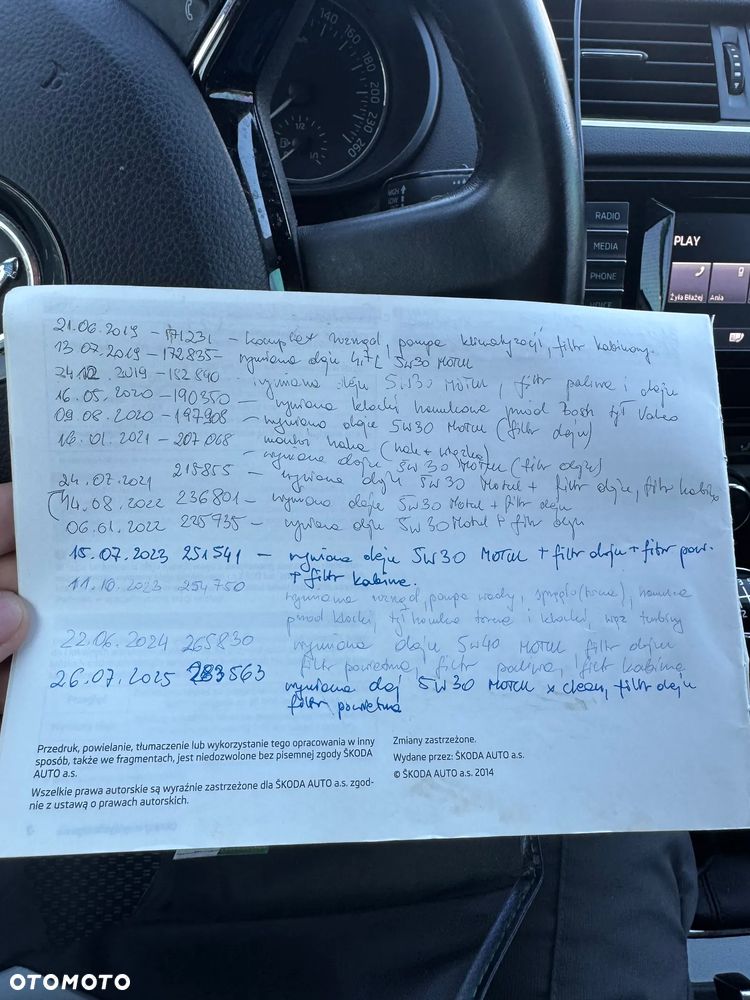 140
160
180
200
220
240
260
1/2
1/1
HIGH
LOW
RADIO
MEDIA
PHONE
VOICE
PLAY
Żyła Błażej
Ania
21.06.2019 - 171231 - komplet rozrząd, pompa klimatyzacji, filtr kabinowy.
13.07.2019 - 172835 - wymiana oleju 4.7L 5W30 MOTUL
24.12 2019 - 182840 wymiana oleju 5W30 MOTUL, filtr paliwa i oleju
16.05.2020 - 190350 - wymiana klocki hamulcowe przód Bosh tył Valeo
09.08.2020 - 197908 - wymiana oleju 5W30 MOTUL (filtr oleju)
16.01.2021 - 207068 - montaż haka (hak + wiązka)
- wymiana oleju 5W30 MOTUL (filtr oleju)
24.07.2021 218855 - wymiana oleju 5W30 Motul + filtr oleju, filtr kabino
(14.08.2022 236801 - wymiana oleju 5W30 Motul + filtr oleju
06.01.2022 225735 - wymiana oleju 5W30 Motul + filtr oleju
15.07.2023 251541 - wymiana oleju 5W30 MOTUL + filtr oleju + filtr pow.
+ filtr kabina.
11.10.2023 254750 wymiana rozrząd, pompa wody, sprzęgło (tarcza), hamulce
przód klocki, tył hamulce tarcze i klocki, wąż turbiny
22.06.2024 265830 wymiana oleju 5W40 MOTUL filtr oleju
filtr powietrza, filtr paliwa, filtr kabina
26.07.2025 283563 wymiana olej 5W30 MOTUL x clean, filtr oleju
filtr powietrza
Przedruk, powielanie, tłumaczenie lub wykorzystanie tego opracowania w inny
sposób, także we fragmentach, jest niedozwolone bez pisemnej zgody ŠKODA
AUTO a.s.
Wszelkie prawa autorskie są wyraźnie zastrzeżone dla ŠKODA AUTO a.s. zgod-
nie z ustawą o prawach autorskich.
Zmiany zastrzeżone.
Wydane przez: ŠKODA AUTO a.s.
© ŠKODA AUTO a.s. 2014
OTOMOTO